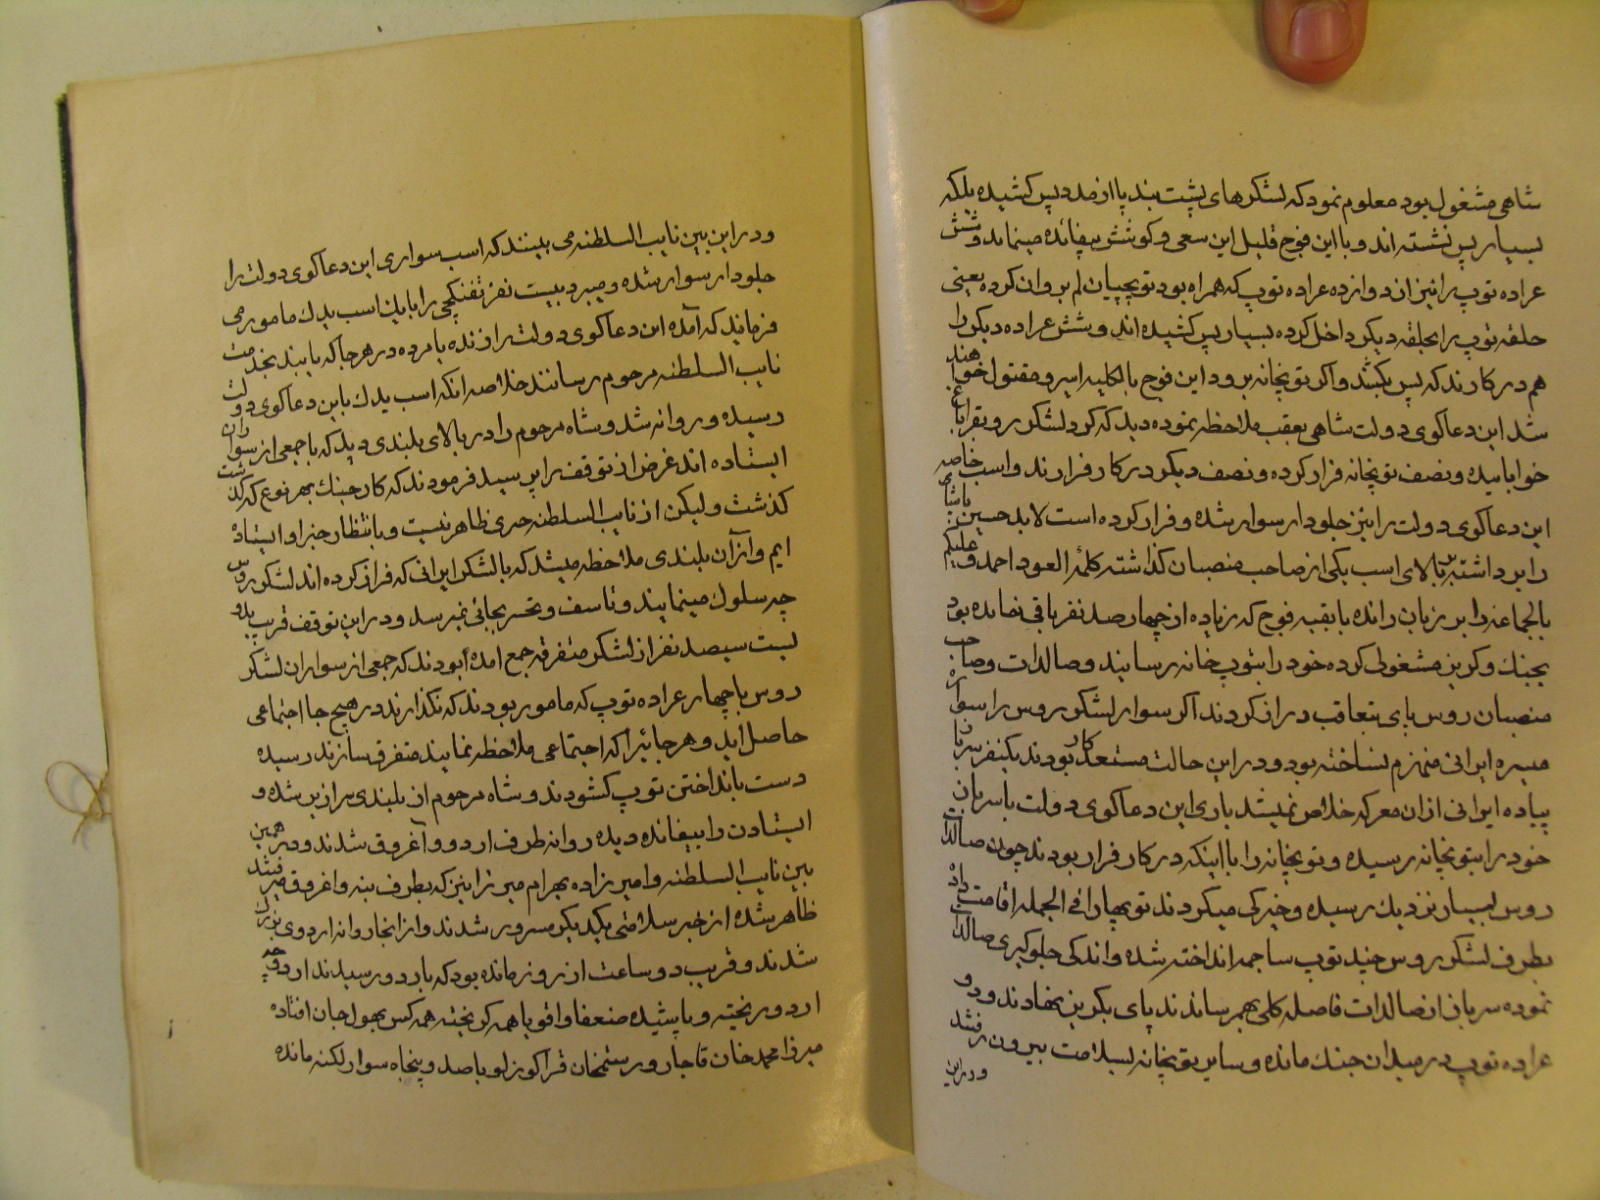 شاهی مشغول بود معلوم نمود که لشکرهای پشت بند پا از صد پس کشیده بلکه
بسیار پس نشسته اند و با این فوج قلیل این سعی و کوشش بیفائده مینماید و شش
عراده توپ را نیز از دوازده عراده توپ که همراه بود توپچیان لم بروان کرده یعنی
حلقه توپ را بحلقه دیگر داخل کرده بسیار پس کشیده اند و شش عراده دیگر را
هم در کارند که پس بکشند و اگر توپخانه برود این فوج بالکلیه اسیر و مقتول خواهند
شد این دعاگوی دولت شاهی بعقب ملاحظه نموده دید که کرد لشکر رو بقراباغ
خوابانیده و نصف توپخانه فرار کرده و نصف دیگر در کار فرارند و اسب خاصه
این دعاگوی دولت را نیز جلودار سوار شده و فرار کرده است لابد حسین پاشای
را برداشته بر بالای اسب یکی از صاحب منصبان گذاشته کلمهٔ العود احمد و علیکم
بالجماعه را بر زبان رانده با بقیه فوج که زیاده از چهار صد نفر باقی نمانده بود
بجنگ و گریز مشغولی کرده خود را بتوپ خانه رسانیدند و صالدات و صاحب
منصبان روس پای بتعاقب دراز کردند اگر سوار لشکر روس را سواره
میسره ایرانی منهزم نساخته بود و در این حالت مستعد کار بودند یکنفر سرباز
پیاده ایرانی از ان معرکه خلاص نمیشد باری این دعاگوی دولت با سربازان
خود را بتوپخانه رسیده و توپخانه را با اینکه در کار فرار بودند چون صالدات
روس بسیار نزدیک رسیده و خیرگی میکردند توپها را فی الجمله اقامت داده
بطرف لشکر روس چند توپ ساچمه انداخته شده و اندکی جلوگیری صالدات
نموده سرباز از صالدات فاصله کلی بهم رساندند پای بگریز نهادند و دو
عراده توپ در میدان جنگ مانده و سایر توپخانه بسلامت بیرون رفتند
و در این
و در این بین نایب السلطنه می بینند که اسب سواری این دعاگوی دولت را
جلودار سوار شده و میبرد بیست نفر تفنگچی را با یک اسب یدک مامور می
فرمایند که آمده این دعاگوی دولت را زنده یا مرده در هر جا که یابند بخدمت
نایب السلطنه مرحوم رسانند خلاصه انکه اسب یدک باین دعاگوی دولت
رسیده و روانه شد و شاه مرحوم را در بالای بلندی دید که با جمعی از سواران
ایستاده اند غرض از توقف را پرسید فرمودند که کار جنگ بهر نوع که گذشت
گذشت و لیکن از نایب السلطنه خبری ظاهر نیست و بانتظار خبر او ایستاده
ایم و از آن بلندی ملاحظه میشد که با لشکر ایرانی که فرار کرده اند لشکر روس
چه سلوک مینمایند و تاسف و تحسر بجائی نمیرسد و در این توقف قریب بدو
بیست سیصد نفر از لشکر متفرقه جمع امده بودند که جمعی از سواران لشکر
روس با چهار عراده توپ که مامور بودند که نگذارند در هیچ جا اجتماعی
حاصل اید و هر جائیرا که اجتماعی ملاحظه نمایند متفرق سازند رسیده
دست بانداختن توپ کشودند و شاه مرحوم از بلندی سرازیر شده و
ایستادن را بیفائده دیده روانه طرف اردو و آغروق شدند و در همین
بین نایب السلطنه و امیرزاده بهرام میرزا نیز که بطرف بنه و اغروق میرفتند
ظاهر شده از خبر سلامتی یکدیگر مسرور شدند و از انجا روانه اردوی بزرگ
شدند و قریب دو ساعت از روز مانده بود که باردو رسیدند اردو چه
اردو ریخته و پاشیده ضعفا و اقویا همه گریخته همه کس بهول جان افتاده
میرزا محمد خان قاجار و رستمخان قراگوزلو با صد و پنجاه سوار لکنه مانده